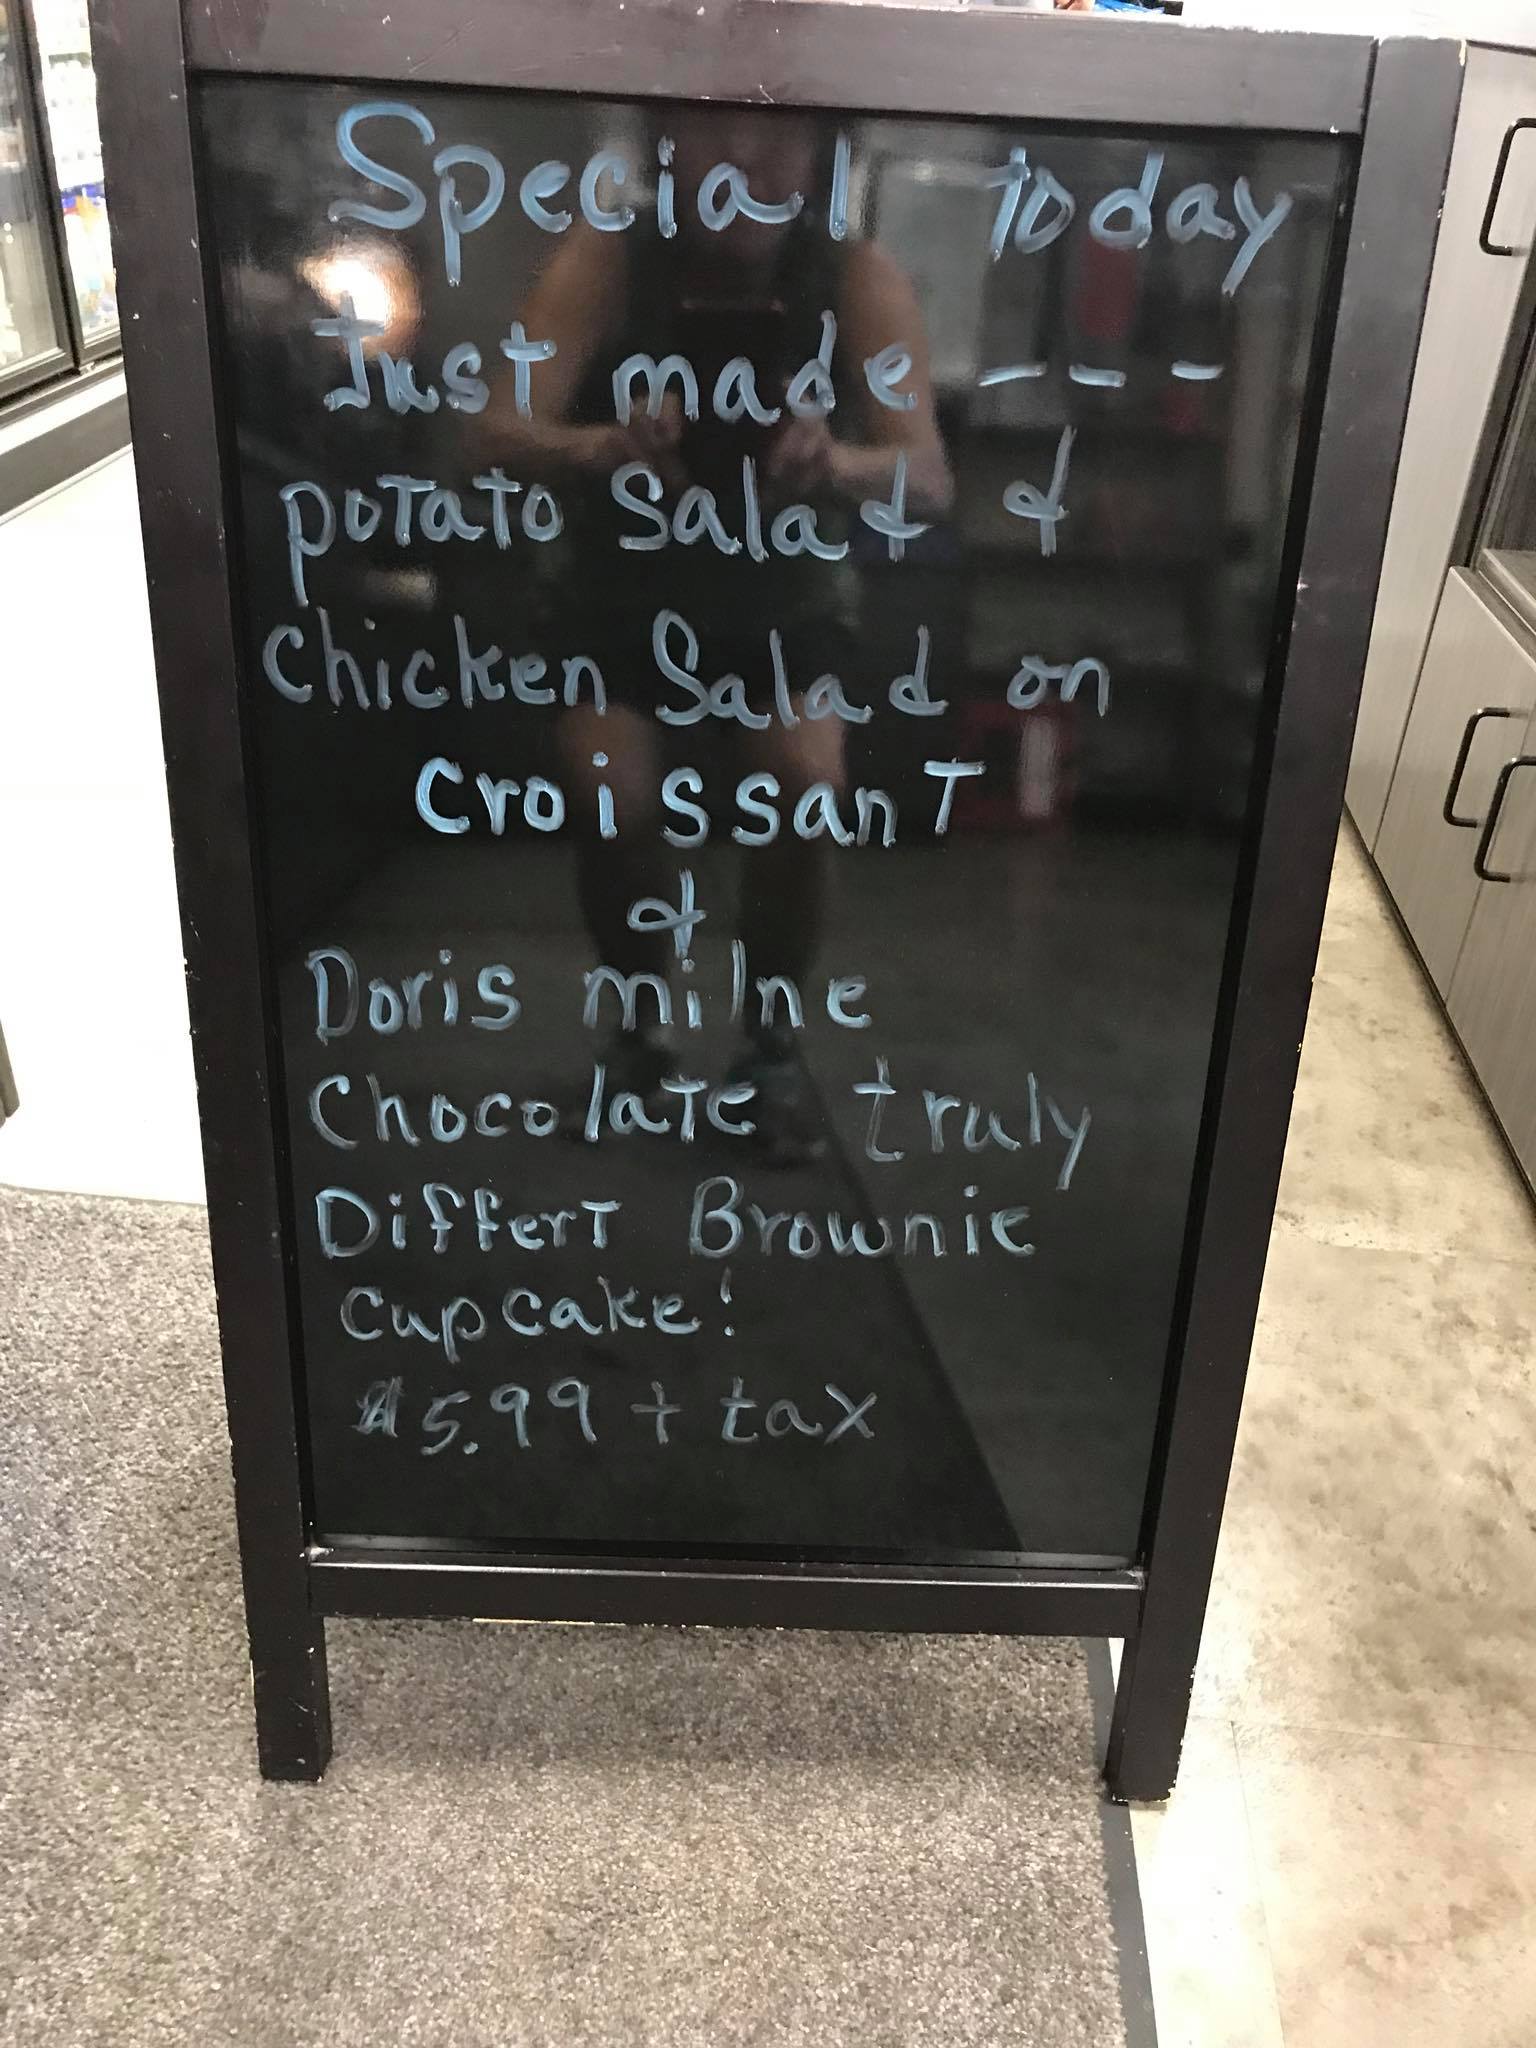 Special today
Just made ---
potato Salad &
Chicken Salad on
croissant
&
Doris milne
Chocolate truly
Differt Brownie
cupcake!
$5.99 + tax